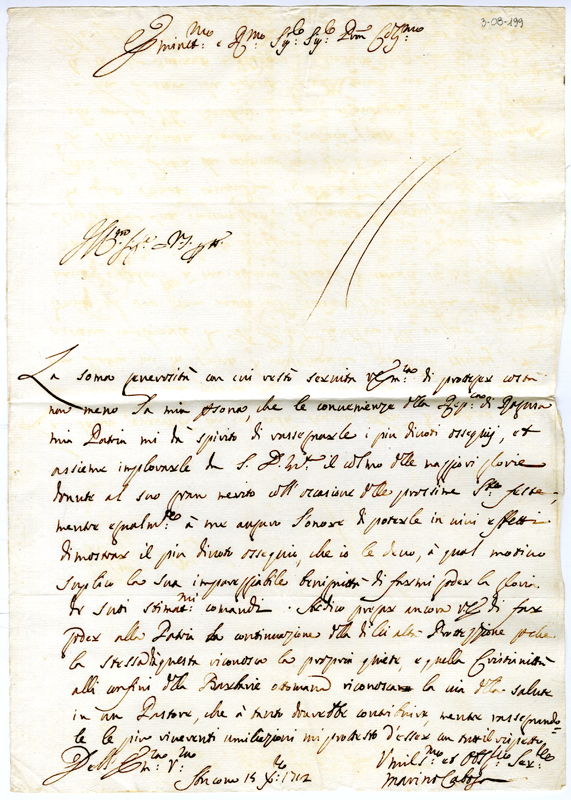 3-08-199
Eminent.mo e R.mo Sig.e Sig.e Pron
La soma generosità con cui restò servita V. Em.za di protegger costà
non meno la mia psona, che le convenienze della Rep.ca di Ragusa
mia Patria mi dà spirito di rassegnarle i più divoti ossequij, et
assieme implorarle da S. D. M.tà il colmo delle maggiori glorie
dovute al suo gran merito coll' occasione delle prossime S.te feste,
mentre egualm.te à me auguro l'onore di poterle in vivi effetti
dimostrar il più divoto ossequio, che io le devo, à qual motivo
suplico la sua impareggiabile benignità di farmi goder la gloria
de suoi stimat.mi comandi. Ardisco pregar ancora V. E. di far
goder alla Patria la continuazione della di lei alta Protezzione
la stessa questa riconosca la propria quiete, e quella Cristianità
alli confini della Barbarie ottomana riconosca la via della salute
in un Pastore, che à tanto dovrebbe contribuire, mentre rassegnando-
le le più riverenti umiliazioni mi protesto d'esser con tutto il rispetto
Dell' Em.za V.a
Ancona 15 X.bre 1712
Umil.mo et Obb.mo Ser.re
Marino Caboga